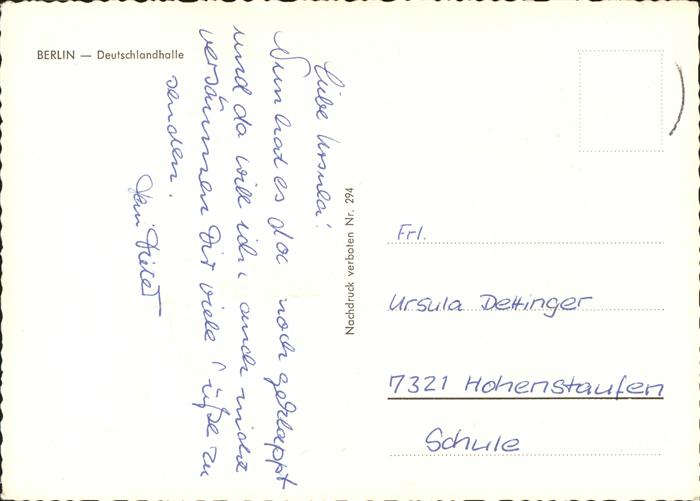 BERLIN — Deutschlandhalle
Liebe Ursula!
Nun hat es doc noch geklappt
und da will ich auch nicht
versäumen Dir viele üße zu
senden.
Dein
Nachdruck verboten Nr. 294
Frl.
Ursula Dettinger
7321 Hohenstaufen
Schule